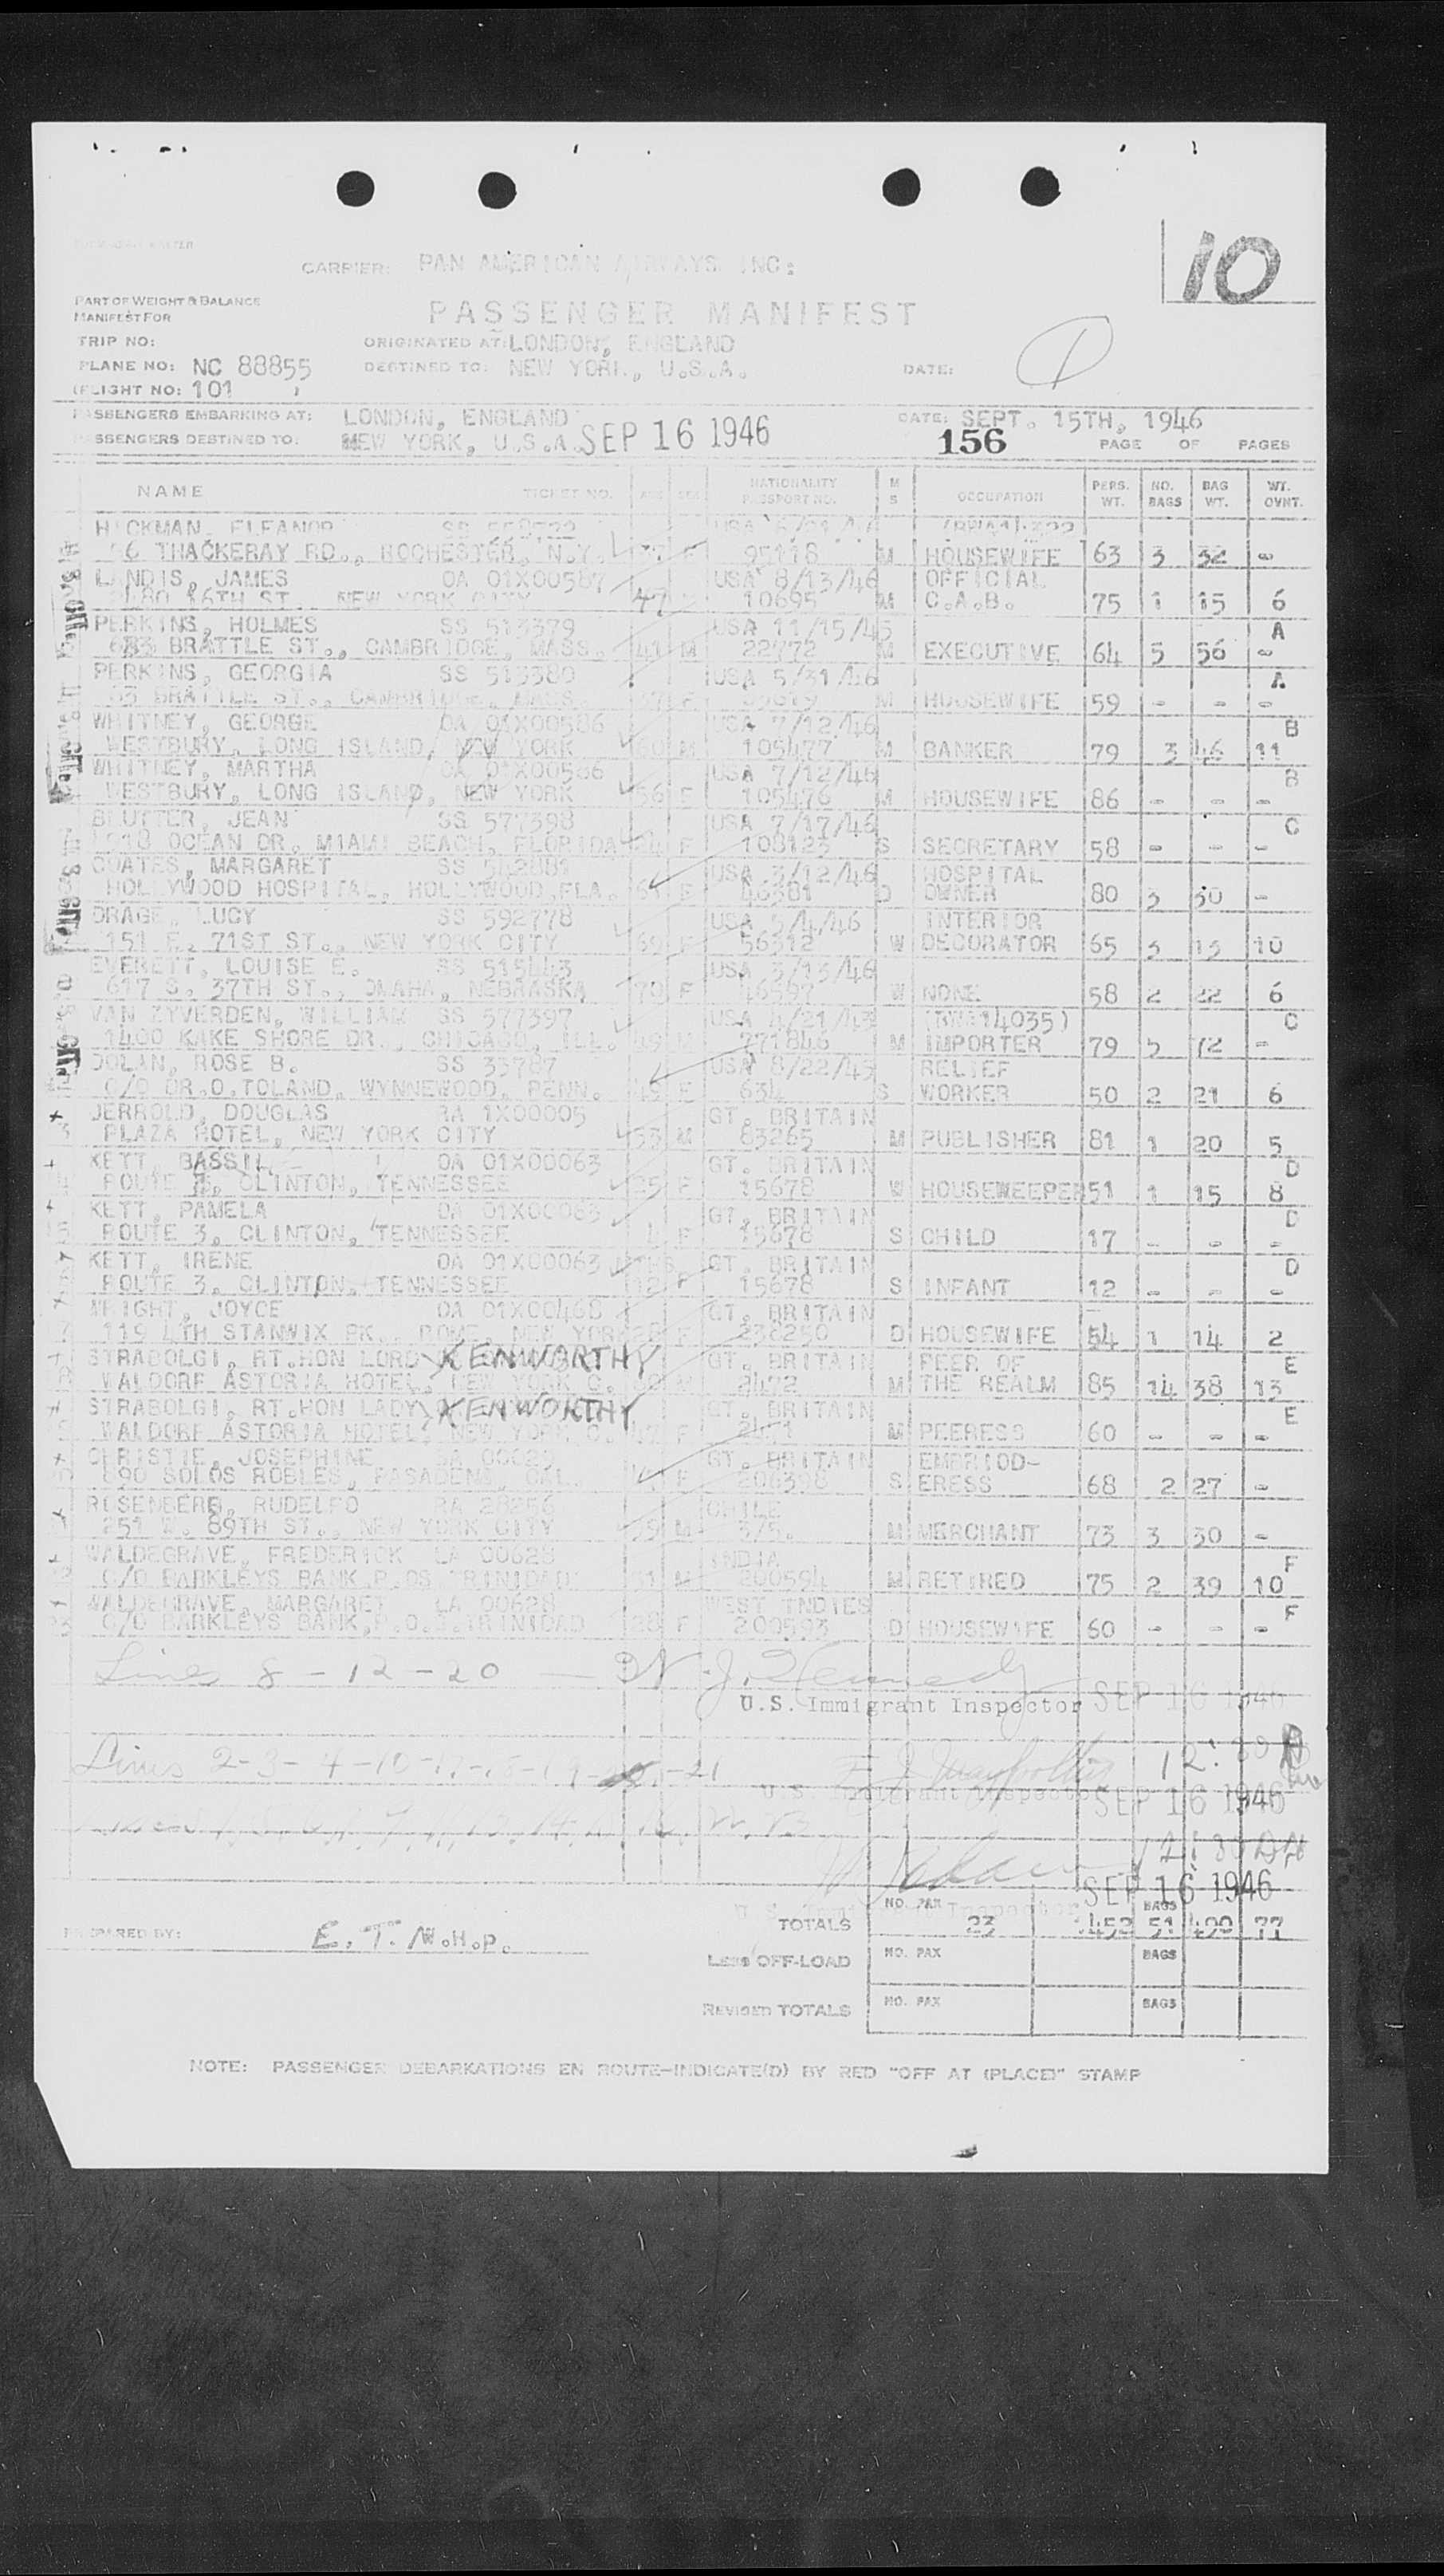 10
CARRIER: PAN AMERICAN AIRWAYS INC:
PART OF WEIGHT & BALANCE
MANIFEST FOR
PASSENGER MANIFEST
TRIP NO: ORIGINATED AT: LONDON, ENGLAND
PLANE NO: NC 88855 DESTINED TO: NEW YORK, U.S.A. DATE:
(FLIGHT NO: 101 )
PASSENGERS EMBARKING AT: LONDON, ENGLAND DATE: SEPT. 15TH, 1946
PASSENGERS DESTINED TO: NEW YORK, U.S.A. SEP 16 1946 156 PAGE OF PAGES
NAME TICKET NO. AGE SEX NATIONALITY PASSPORT NO. M S OCCUPATION PERS. WT. NO. BAGS BAG WT. WT. OVNT.
HICKMAN, ELEANOR SS USA
THACKERAY RD., ROCHESTER, N.Y. 95118 M HOUSEWIFE 63 3 32 -
LANDIS, JAMES OA 01X00587 USA 8/13/46 OFFICIAL
16TH ST., NEW YORK CITY 47 10695 M C.A.B. 75 1 15 6
PERKINS, HOLMES SS 513379 USA 11/15/45 A
BRATTLE ST., CAMBRIDGE, MASS. 41 M 22772 M EXECUTIVE 64 5 56 -
PERKINS, GEORGIA SS 513380 USA 5/31/46 A
63 BRATTLE ST., CAMBRIDGE, MASS. 37 F M HOUSEWIFE 59 - - -
WHITNEY, GEORGE OA 01X00586 USA 7/12/46 B
WESTBURY, LONG ISLAND, NEW YORK 60 M 105477 M BANKER 79 3 46 11
WHITNEY, MARTHA OA 01X00586 USA 7/12/46 B
WESTBURY, LONG ISLAND, NEW YORK 56 F 105476 M HOUSEWIFE 86 - - -
BLUTTER, JEAN SS 577398 USA 7/17/46 C
OCEAN DR. MIAMI BEACH, FLORIDA F 108123 S SECRETARY 58 - - -
COATES, MARGARET SS 542881 USA 3/12/46 HOSPITAL
HOLLYWOOD HOSPITAL, HOLLYWOOD, FLA. 61 F 46381 D OWNER 80 3 50 -
DRAGE, LUCY SS 592778 USA 5/4/46 INTERIOR
151 E. 71ST ST., NEW YORK CITY 69 F 56312 W DECORATOR 65 3 13 10
EVERETT, LOUISE E. SS 515443 USA 3/13/46
617 S. 37TH ST., OMAHA, NEBRASKA 70 F 46597 W NONE 58 2 22 6
VAN ZYVERDEN, WILLIAM SS 577397 USA 4/21/43 (RWA14035) C
1400 KAKE SHORE DR., CHICAGO, ILL. 771846 M IMPORTER 79 5 72 -
DOLAN, ROSE B. SS 35787 USA 8/22/45 RELIEF
C/O DR.O.TOLAND, WYNNEWOOD, PENN. F 634 S WORKER 50 2 21 6
JERROLD, DOUGLAS RA 1X00005 GT. BRITAIN
PLAZA HOTEL, NEW YORK CITY 53 M 83265 M PUBLISHER 81 1 20 5
KETT, BASSIL OA 01X00063 GT. BRITAIN D
ROUTE 3, CLINTON, TENNESSEE 25 F 15678 W HOUSEWEEPER 51 1 15 8
KETT, PAMELA OA 01X00063 GT. BRITAIN D
ROUTE 3, CLINTON, TENNESSEE F 15678 S CHILD 17 - - -
KETT, IRENE OA 01X00063 GT. BRITAIN D
ROUTE 3, CLINTON, TENNESSEE 12 F 15678 S INFANT 12 - - -
WRIGHT, JOYCE OA 01X00468 GT. BRITAIN
119 4TH STANWIX PK. ROME, NEW YORK 28 F 238250 D HOUSEWIFE 54 1 14 2
STRABOLGI, RT.HON LORD KENWORTHY GT. BRITAIN PEER OF E
WALDORF ASTORIA HOTEL, NEW YORK C. M 2472 M THE REALM 85 14 38 13
STRABOLGI, RT.HON LADY KENWORTHY GT. BRITAIN E
WALDORF ASTORIA HOTEL, NEW YORK F 2471 M PEERESS 60 - - -
CHRISTIE, JOSEPHINE GT. BRITAIN EMBRIOD-
890 SOLOS ROBLES, PASADENA CAL. F 206398 S ERESS 68 2 27 -
ROSENBERG, RUDELFO RA 26256 CHILE
251 W. 89TH ST., NEW YORK CITY 39 M 3/5. M MERCHANT 73 3 30 -
WALDEGRAVE, FREDERICK LA 00628 INDIA F
C/O BARKLEYS BANK P.OS. TRINIDAD 31 M 200594 M RETIRED 75 2 39 10
WALDEGRAVE, MARGARET LA 00628 WEST INDIES F
C/O BARKLEYS BANK, P.O.S. TRINIDAD 28 F 200593 D HOUSEWIFE 60 - - -
Lines 8 - 12 - 20 — W. J. Kennedy
U.S. Immigrant Inspector SEP 16 1946
Lines 2-3-4-10-17-18-19- -21
U.S. Immigrant Inspector SEP 16 1946
SEP 16 1946
U.S. Immigrant Inspector
PREPARED BY: E.T. W.H.P. TOTALS NO. PAX 23 1452 BAGS 51 490 77
Less OFF-LOAD NO. PAX BAGS
REVISED TOTALS NO. PAX BAGS
NOTE: PASSENGER DEBARKATIONS EN ROUTE-INDICATE(D) BY RED "OFF AT (PLACE)" STAMP